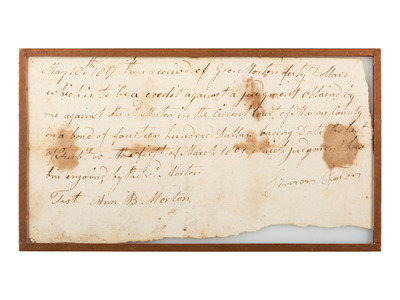 May 18th 1819 then received of Geo. Morton forty Dollars
which is to be a credit against a judgment obtained by
me against the sd. Morton in the Circuit Court of County
on a bond of fourteen hundred Dollars baring Date the last
of or the first of March which judgment has
ben injoined by the sd. Morton
Test Ann B Morton